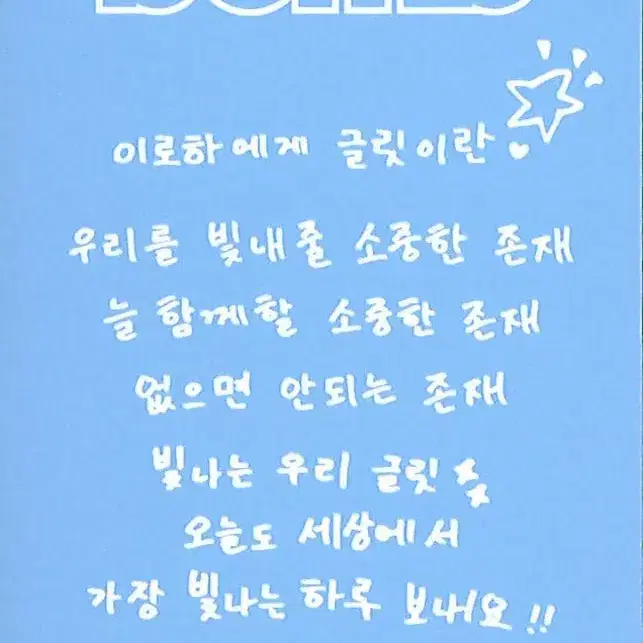 이로하에게 글릿이란
우리를 빛내줄 소중한 존재
늘 함께할 소중한 존재
없으면 안되는 존재
빛나는 우리 글릿
오늘도 세상에서
가장 빛나는 하루 보내요!!